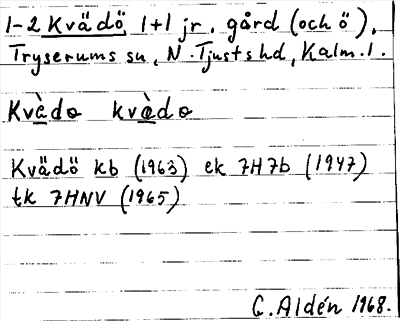 1-2 Kvädö, 1+1 jr. gård (och ö),
Tryserums sn, N. Tjusts hd, Kalm. l.
Kvädo kvädo
Kvädö kb (1963) ek 7H7b (1947)
tk 7HNV (1965)
C. Aldén 1968.